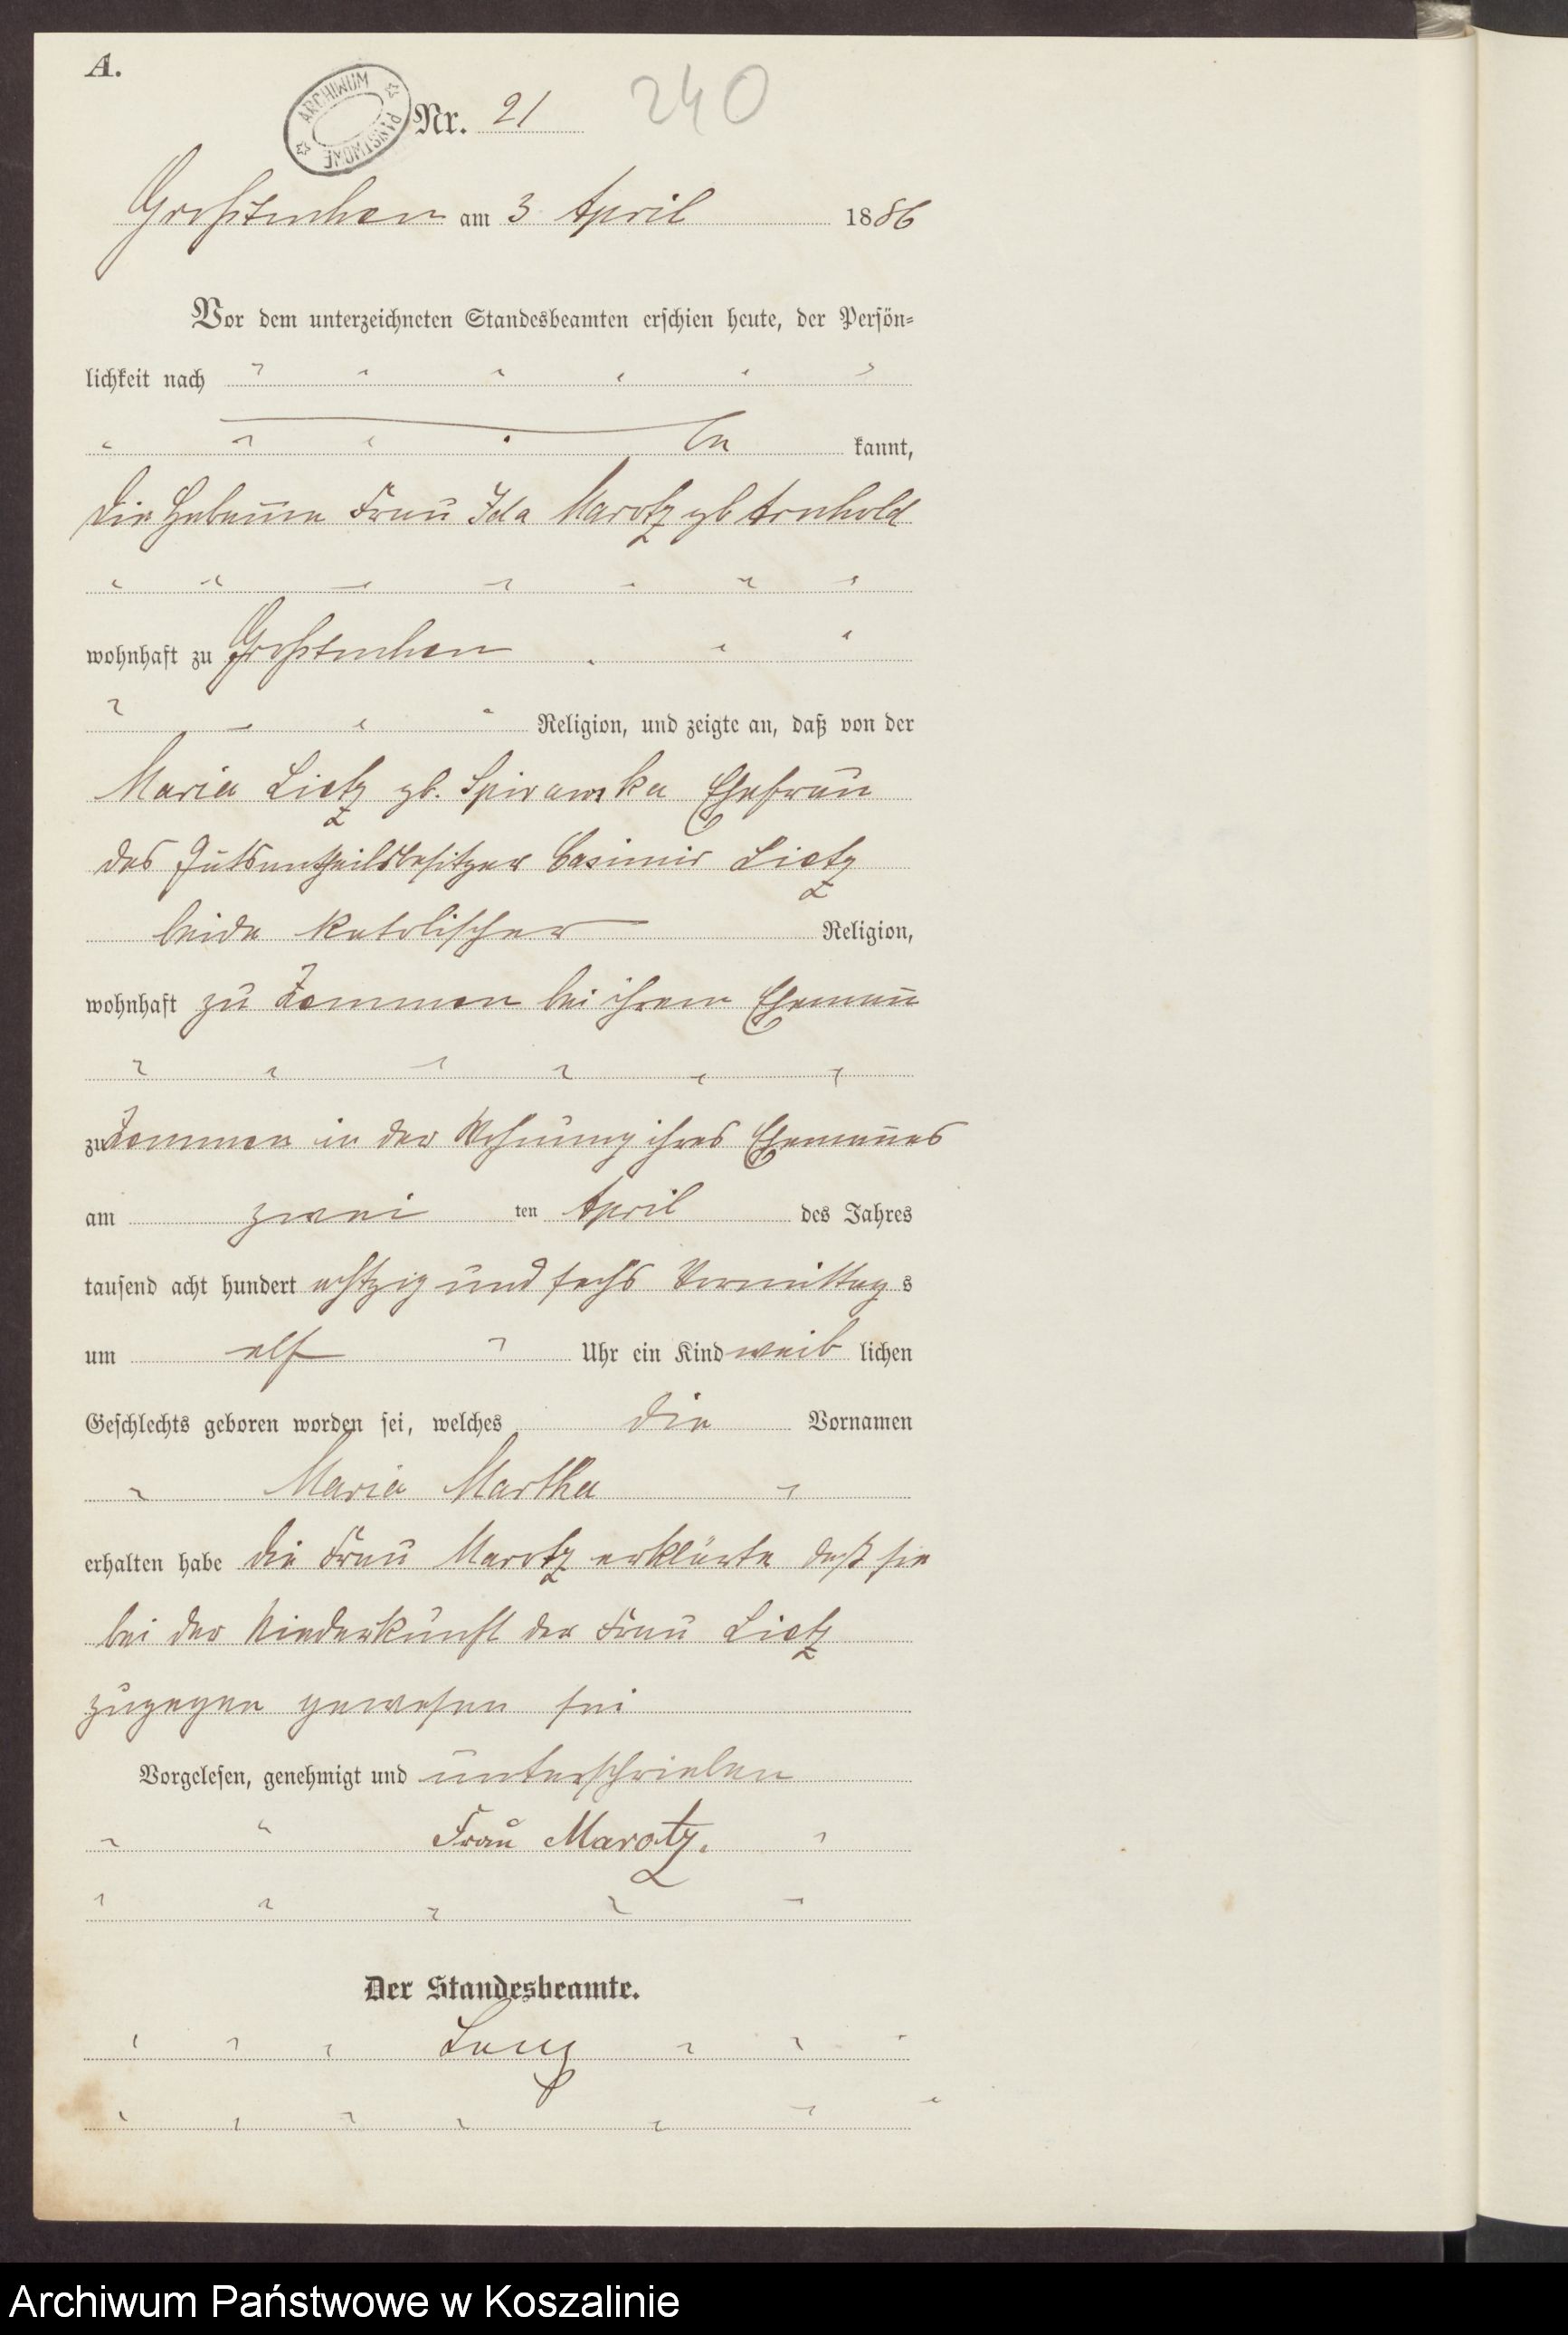 A.
ARCHIWUM PAŃSTWOWE
Nr. 21 240
Großtuchen am 3 April 1886
Vor dem unterzeichneten Standesbeamten erschien heute, der Persön=
lichkeit nach
be kannt,
die Hebamme Frau Ida Marotz gb Arnhold
wohnhaft zu Großtuchen
Religion, und zeigte an, daß von der
Maria Lietz gb. Ehefrau
des Gutsantheilsbesitzer Casimir Lietz
beide katolischer Religion,
wohnhaft zu Zemmen bei ihrem Ehemann
zu Zemmen in der Wohnung ihres Ehemannes
am zwei ten April des Jahres
tausend acht hundert achtzig und sechs Vormittag s
um elf Uhr ein Kind weib lichen
Geschlechts geboren worden sei, welches die Vornamen
Maria Martha
erhalten habe die Frau Marotz erklärte daß sie
bei der Niederkunft der Frau Lietz
zugegen gewesen sei
Vorgelesen, genehmigt und unterschrieben
Frau Marotz.
Der Standesbeamte.
Archiwum Państwowe w Koszalinie